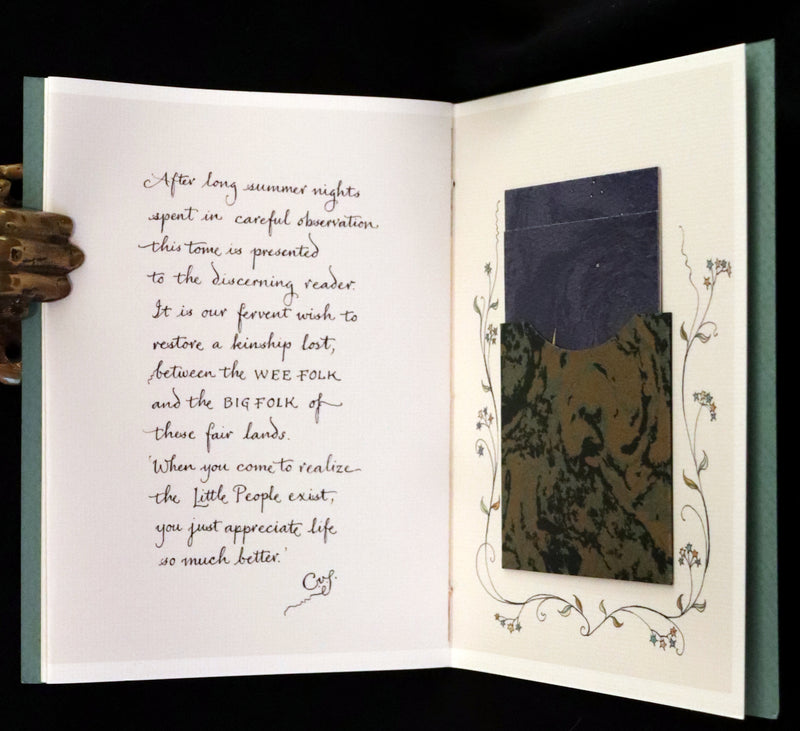 After long summer nights
spent in careful observation
this tome is presented
to the discerning reader.
It is our fervent wish to
restore a kinship lost,
between the WEE FOLK
and the BIG FOLK of
these fair lands.
'When you come to realize
the Little People exist,
you just appreciate life
so much better.'
CvS.